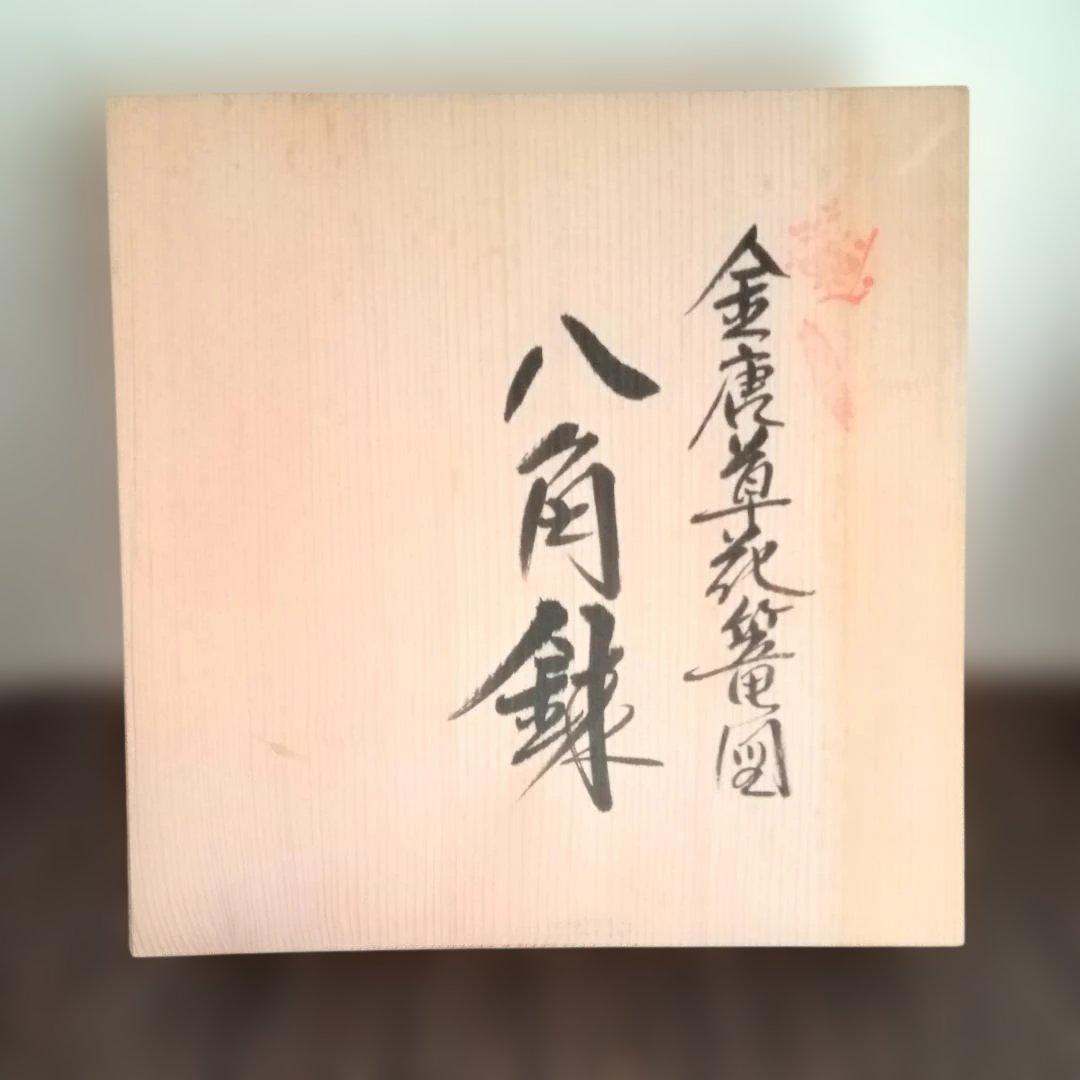 金唐草花篭図
八角鉢